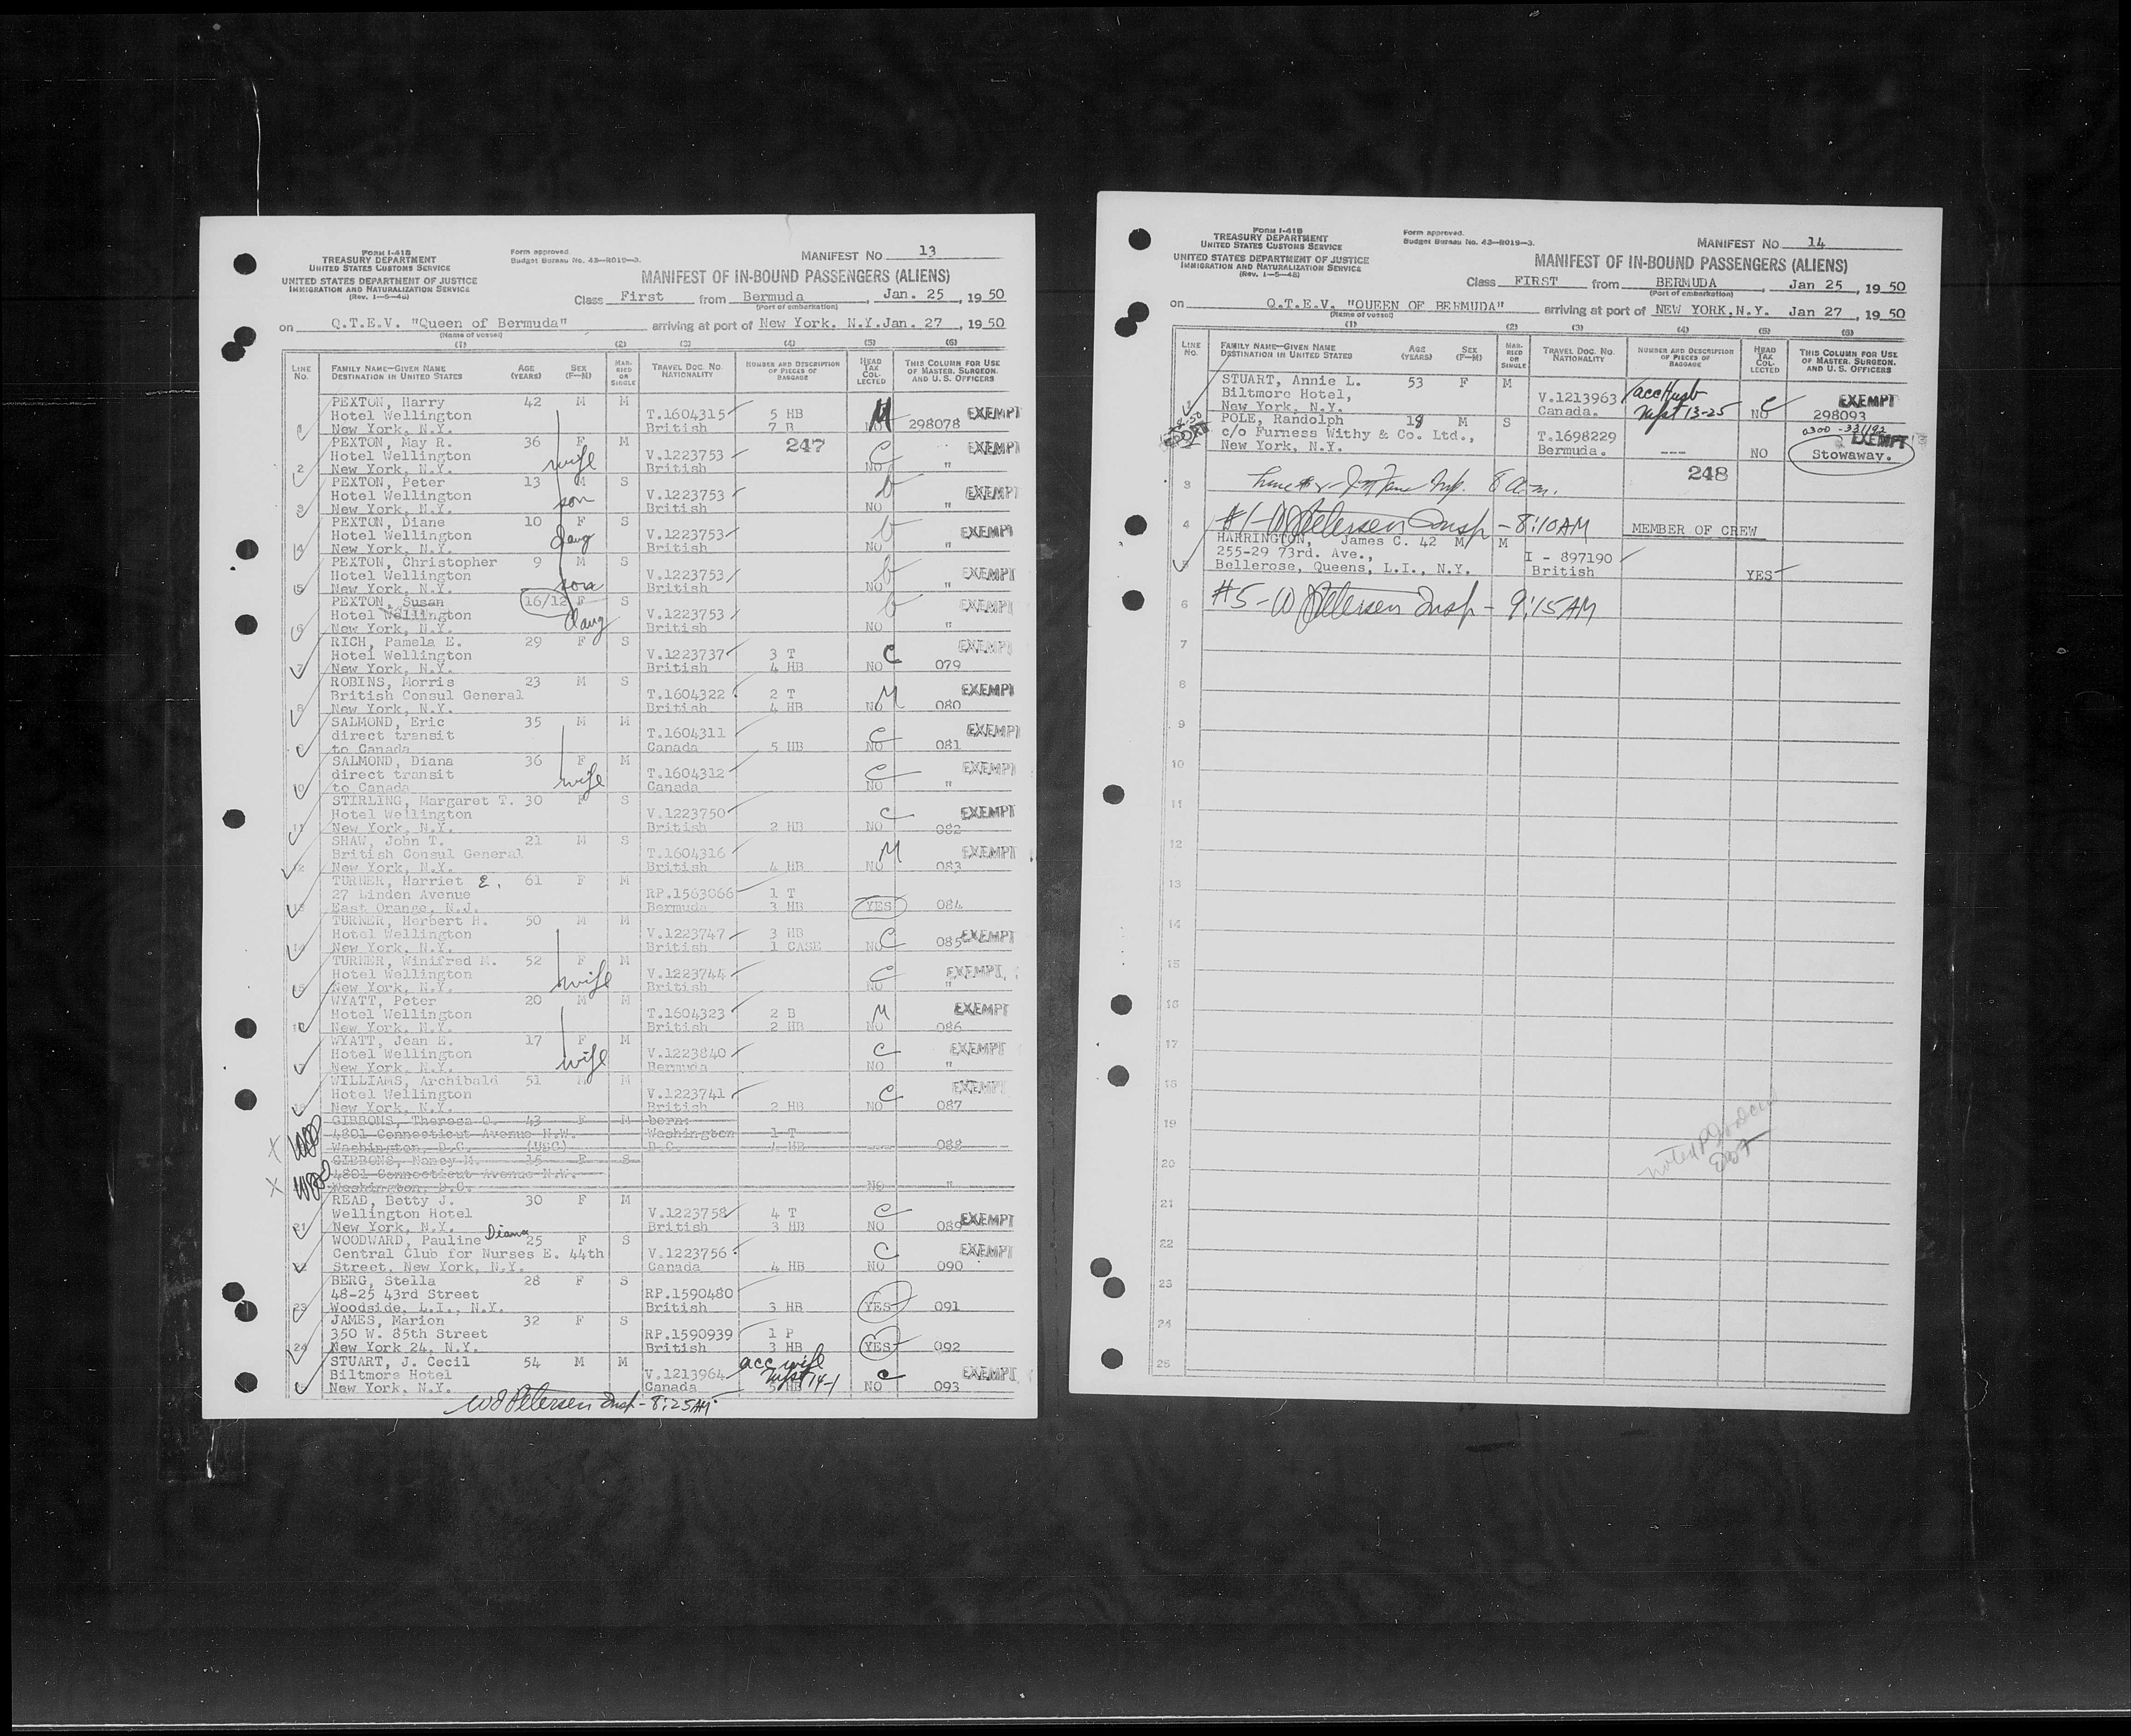 Form I-418
TREASURY DEPARTMENT
UNITED STATES CUSTOMS SERVICE
UNITED STATES DEPARTMENT OF JUSTICE
IMMIGRATION AND NATURALIZATION SERVICE
(Rev. 1-5-48)
Form approved.
Budget Bureau No. 43-R019-3.
MANIFEST No 13
MANIFEST OF IN-BOUND PASSENGERS (ALIENS)
Class First from Bermuda , Jan. 25 , 1950
(Port of embarkation)
on Q.T.E.V. "Queen of Bermuda" arriving at port of New York, N.Y. Jan. 27 , 1950
(Name of vessel)
(1) (2) (3) (4) (5) (6)
LINE No. FAMILY NAME—GIVEN NAME DESTINATION IN UNITED STATES AGE (YEARS) SEX (F-M) MARRIED OR SINGLE TRAVEL DOC. NO. NATIONALITY NUMBER AND DESCRIPTION OF PIECES OF BAGGAGE HEAD TAX COLLECTED THIS COLUMN FOR USE OF MASTER, SURGEON, AND U. S. OFFICERS
PEXTON, Harry 42 M M
Hotel Wellington T.1604315 5 HB EXEMPT
New York, N.Y. British 7 B 298078
PEXTON, May R. 36 F M 247 EXEMPT
Hotel Wellington wife V.1223753 C
2 New York, N.Y. British NO "
PEXTON, Peter 13 M S
Hotel Wellington son V.1223753 EXEMPT
3 New York, N.Y. British NO "
PEXTON, Diane 10 F S
Hotel Wellington daug V.1223753 EXEMPT
4 New York, N.Y. British NO "
PEXTON, Christopher 9 M S
Hotel Wellington V.1223753 EXEMPT
5 New York, N.Y. son British NO "
PEXTON, Susan 16/12 F S EXEMPT
Hotel Wellington daug V.1223753
6 New York, N.Y. British NO "
RICH, Pamela E. 29 F S EXEMPT
Hotel Wellington V.1223737 3 T C
7 New York, N.Y. British 4 HB NO 079
ROBINS, Morris 23 M S EXEMPT
British Consul General T.1604322 2 T M
8 New York, N.Y. British 4 HB NO 080
SALMOND, Eric 35 M M EXEMPT
direct transit T.1604311 C
to Canada Canada 5 HB NO 081
SALMOND, Diana 36 F M EXEMPT
direct transit wife T.1604312 C
10 to Canada Canada NO "
STIRLING, Margaret T. 30 F S
Hotel Wellington V.1223750 C EXEMPT
11 New York, N.Y. British 2 HB NO 082
SHAW, John T. 21 M S
British Consul General T.1604316 M EXEMPT
12 New York, N.Y. British 4 HB NO 083
TURNER, Harriet E. 61 F M
27 Linden Avenue RP.1563066 1 T
13 East Orange, N.J. Bermuda 3 HB YES 084
TURNER, Herbert H. 50 M M
Hotel Wellington V.1223747 3 HB EXEMPT
14 New York, N.Y. British 1 CASE NO C 085
TURNER, Winifred M. 52 F M
Hotel Wellington wife V.1223744 C EXEMPT
15 New York, N.Y. British NO "
WYATT, Peter 20 M M
Hotel Wellington T.1604323 2 B M EXEMPT
New York, N.Y. British 2 HB NO 086
WYATT, Jean E. 17 F M
Hotel Wellington wife V.1223840 C EXEMPT
New York, N.Y. Bermuda NO "
WILLIAMS, Archibald 51 M M
Hotel Wellington V.1223741 C EXEMPT
New York, N.Y. British 2 HB NO 087
GIBBONS, Theresa O. 43 F M born:
4801 Connecticut Avenue N.W. Washington 1 T
Washington, D.C. (USC) D.C. 4 HB 088
GIBBONS, Nancy M. 15 F S
4801 Connecticut Avenue N.W.
Washington, D.C. NO "
READ, Betty J. 30 F M
Wellington Hotel V.1223758 4 T C
21 New York, N.Y. British 3 HB NO 089 EXEMPT
WOODWARD, Pauline Diana 25 F S
Central Club for Nurses E. 44th V.1223756 C EXEMPT
Street, New York, N.Y. Canada 4 HB NO 090
BERG, Stella 28 F S
48-25 43rd Street RP.1590480
23 Woodside, L.I., N.Y. British 3 HB YES 091
JAMES, Marion 32 F S
350 W. 85th Street RP.1590939 1 P
24 New York 24, N.Y. British 3 HB YES 092
STUART, J. Cecil 54 M M acc wife
Biltmore Hotel V.1213964 Mfst 14-1 C EXEMPT
New York, N.Y. Canada 5 HB NO 093
W Petersen Insp - 8:25 AM
Form I-418
TREASURY DEPARTMENT
UNITED STATES CUSTOMS SERVICE
UNITED STATES DEPARTMENT OF JUSTICE
IMMIGRATION AND NATURALIZATION SERVICE
(Rev. 1-5-48)
Form approved.
Budget Bureau No. 43-R019-3.
MANIFEST No 14
MANIFEST OF IN-BOUND PASSENGERS (ALIENS)
Class FIRST from BERMUDA , Jan 25 , 1950
(Port of embarkation)
on Q.T.E.V. "QUEEN OF BERMUDA" arriving at port of NEW YORK, N.Y. Jan 27 , 1950
(Name of vessel)
(1) (2) (3) (4) (5) (6)
LINE No. FAMILY NAME—GIVEN NAME DESTINATION IN UNITED STATES AGE (YEARS) SEX (F-M) MARRIED OR SINGLE TRAVEL DOC. NO. NATIONALITY NUMBER AND DESCRIPTION OF PIECES OF BAGGAGE HEAD TAX COLLECTED THIS COLUMN FOR USE OF MASTER, SURGEON, AND U. S. OFFICERS
STUART, Annie L. 53 F M
Biltmore Hotel, V.1213963 acc Husb C EXEMPT
1 New York, N.Y. Canada. Mfst 13-25 NO 298093
POLE, Randolph 18 M S 0300-331192
c/o Furness Withy & Co. Ltd., T.1698229 EXEMPT
New York, N.Y. Bermuda. --- NO Stowaway.
248
3 8 a.m.
4 #1 - W Petersen Insp - 8:10 AM MEMBER OF CREW
HARRINGTON, James C. 42 M M
255-29 73rd. Ave., I - 897190
5 Bellerose, Queens, L.I., N.Y. British YES
6 #5 - W Petersen Insp - 9:15 AM
7
8
9
10
11
12
13
14
15
16
17
18
19
20
21
22
23
24
25